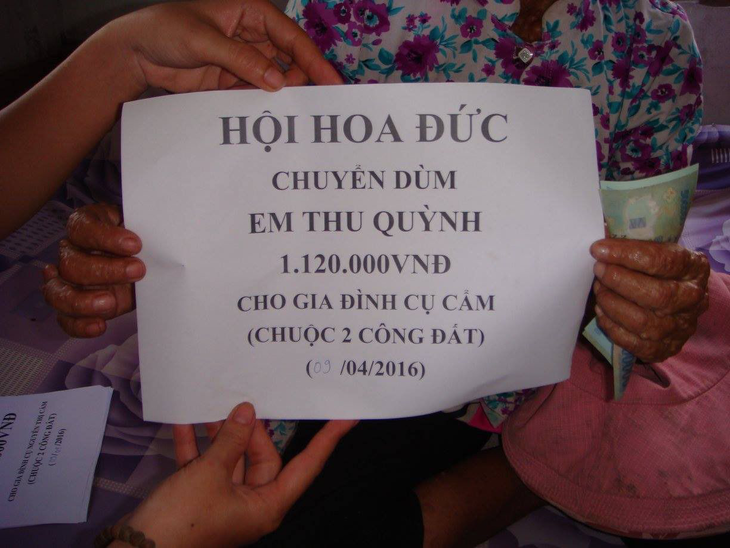 HỘI HOA ĐỨC
CHUYỂN DÙM
EM THU QUỲNH
1.120.000VNĐ
CHO GIA ĐÌNH CỤ CẨM
(CHUỘC 2 CÔNG ĐẤT)
(09 /04/2016)
000VNĐ
CHO GIA ĐÌNH CỤ NGUYỄN THỊ CẨM
(CHUỘC 2 CÔNG ĐẤT)
/2016)